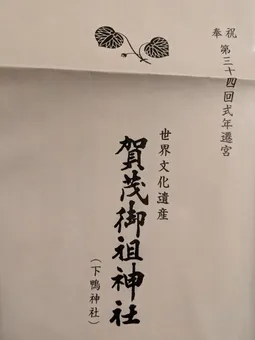 奉祝 第三十四回式年遷宮
世界文化遺産
賀茂御祖神社
（下鴨神社）